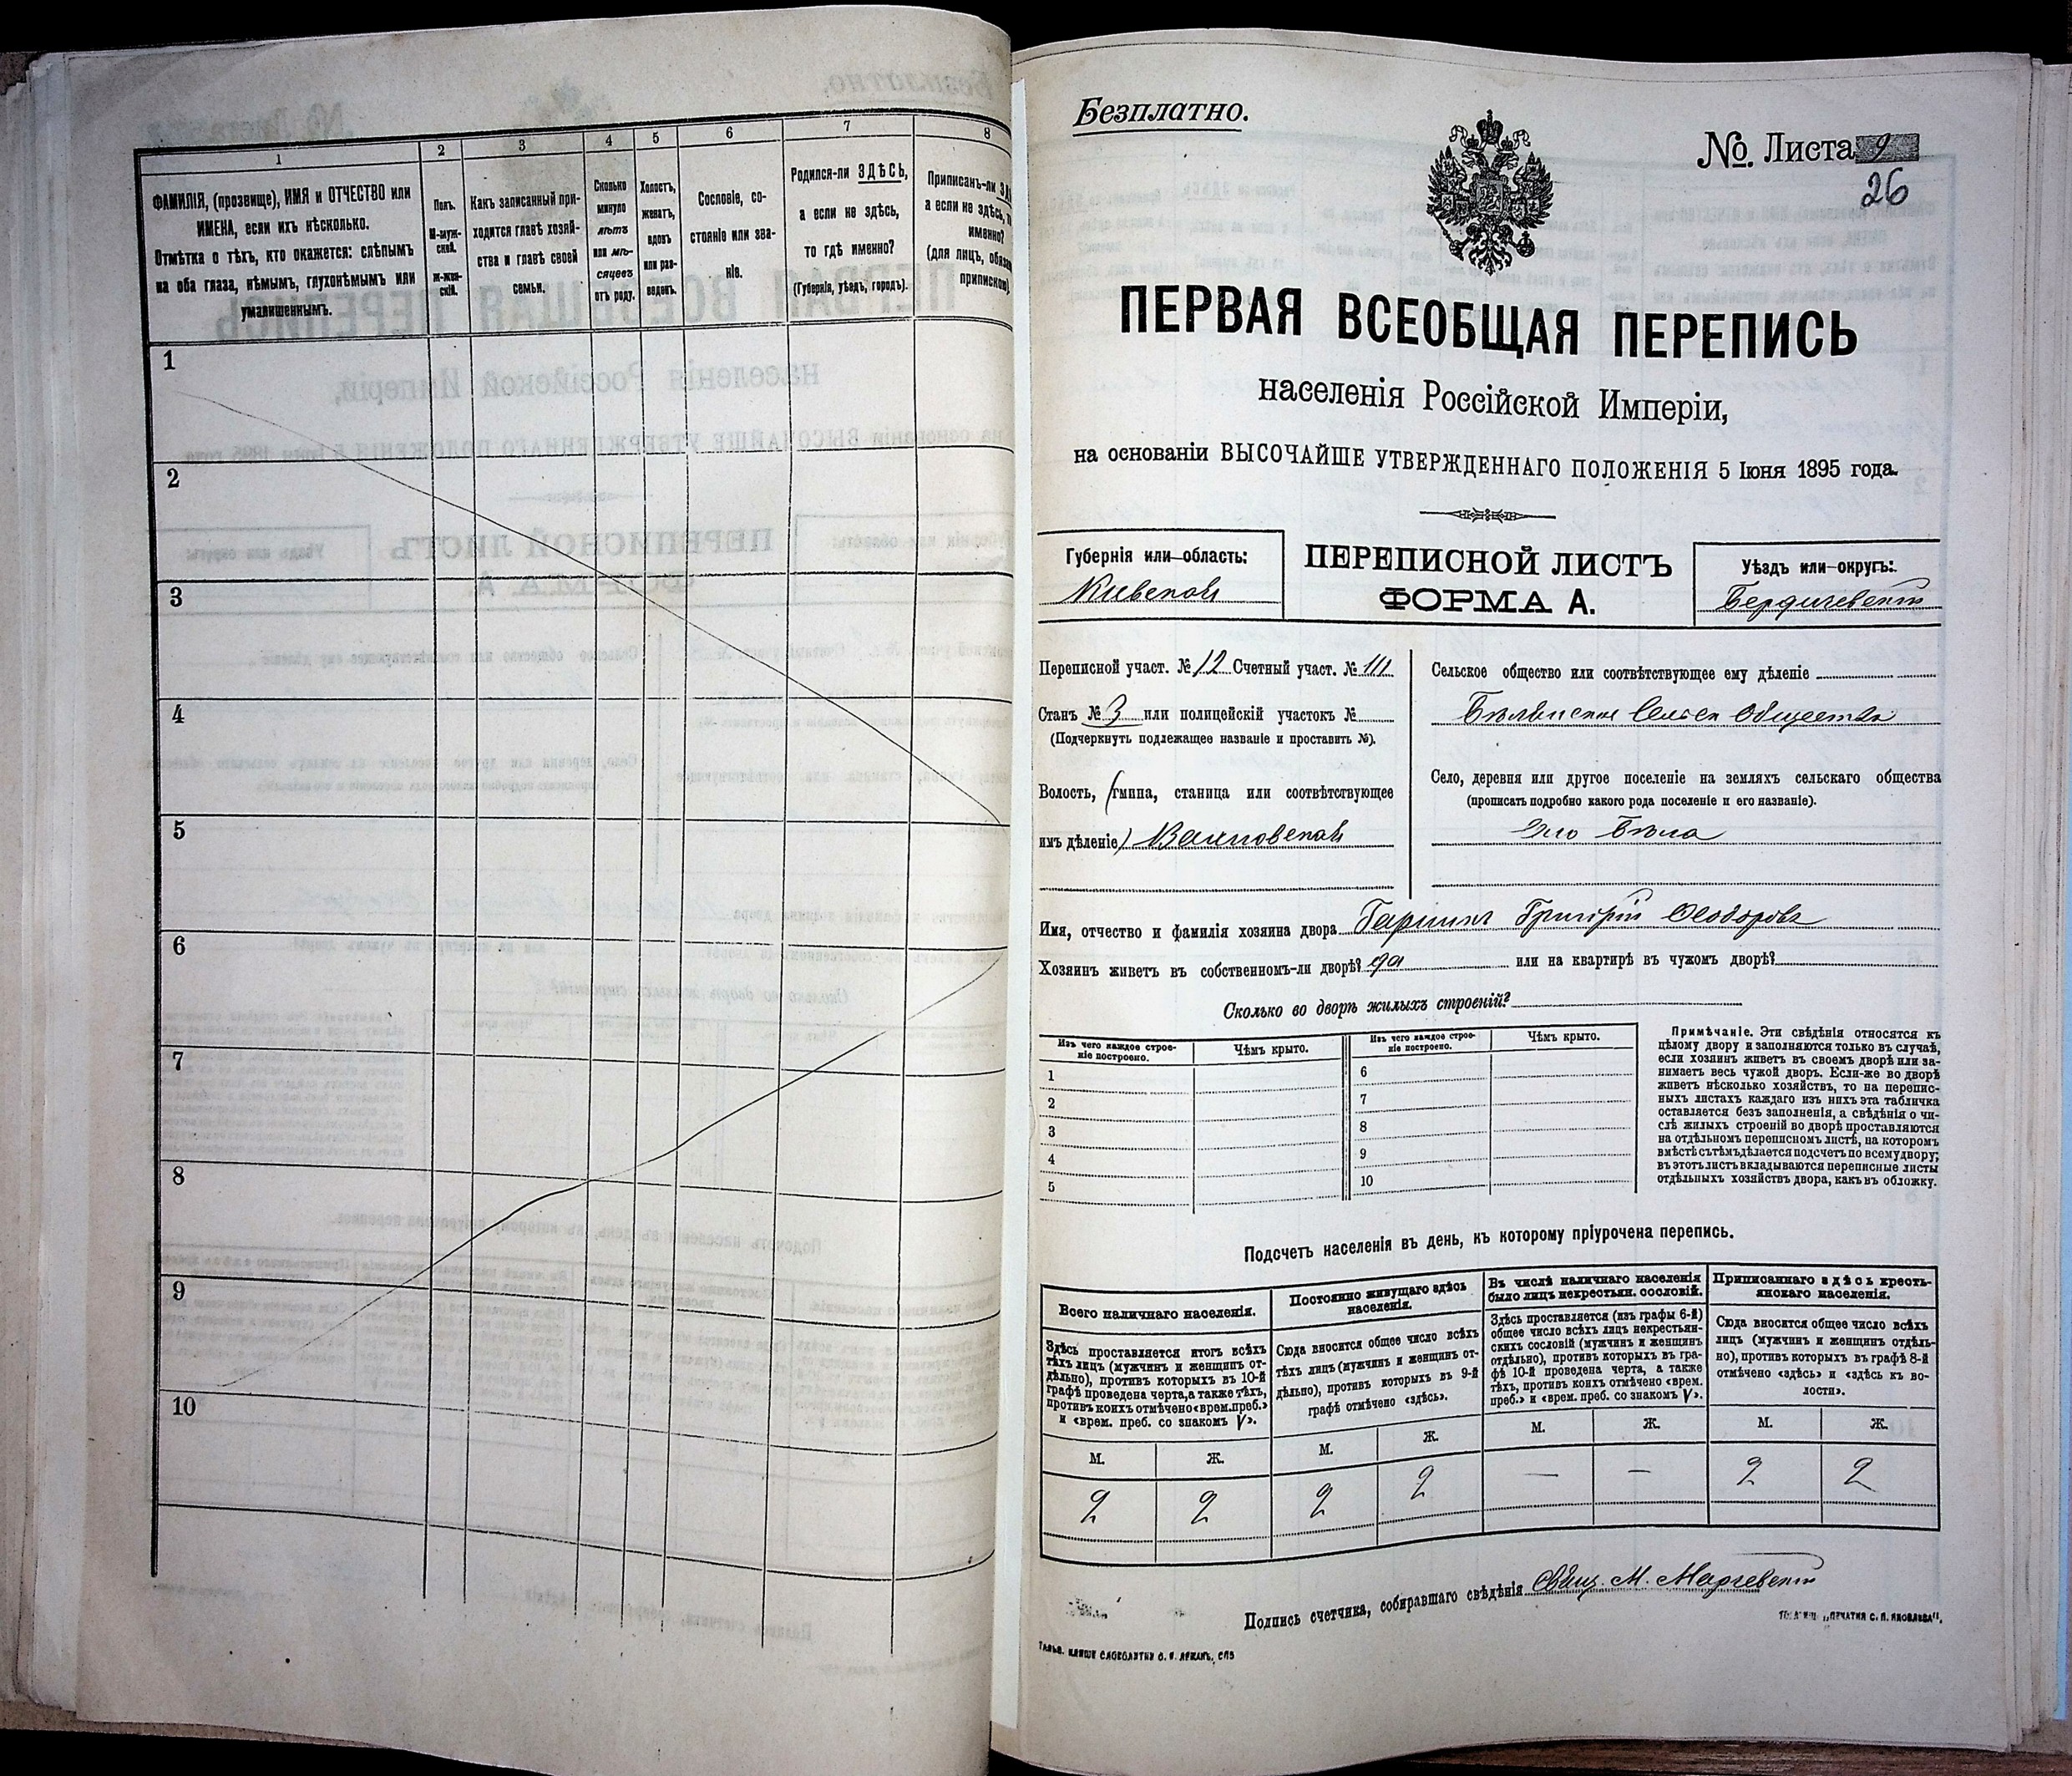 1
2
3
4
5
6
7
8
ФАМИЛІЯ, (прозвище), ИМЯ и ОТЧЕСТВО или
ИМЕНА, если ихъ нѣсколько.
Отмѣтка о тѣхъ, кто окажется: слѣпымъ
на оба глаза, нѣмымъ, глухонѣмымъ или
умалишеннымъ.
Полъ.
М-муж-
ской.
Ж-жен-
скій.
Какъ записанный при-
ходится главѣ хозяй-
ства и главѣ своей
семьи.
Сколько
минуло
лѣтъ
или мѣ-
сяцевъ
отъ роду.
Холостъ,
женатъ,
вдовъ
или раз-
веденъ.
Сословіе, со-
стояніе или зва-
ніе.
Родился-ли ЗДѢСЬ,
а если не здѣсь,
то гдѣ именно?
(Губернія, уѣздъ, городъ).
Приписанъ-ли
а если не здѣсь,
именно?
(для лицъ,
1
2
3
4
5
6
7
8
9
10
Безплатно.
№. Листа 9
26
ПЕРВАЯ ВСЕОБЩАЯ ПЕРЕПИСЬ
населенія Россійской Имперіи,
на основаніи ВЫСОЧАЙШЕ УТВЕРЖДЕННАГО ПОЛОЖЕНІЯ 5 Іюня 1895 года.
Губернія или область:
Кіевская
ПЕРЕПИСНОЙ ЛИСТЪ
ФОРМА А.
Уѣздъ или округъ:
Бердичевскій
Переписной участ. № 12 Счетный участ. № III
Станъ № 3 или полицейскій участокъ №
(Подчеркнуть подлежащее названіе и проставить №).
Волость, (гмина, станица или соотвѣтствующее
имъ дѣленіе) Вахновская
Сельское общество или соотвѣтствующее ему дѣленіе
Общество
Село, деревня или другое поселеніе на земляхъ сельскаго общества
(прописать подробно какого рода поселеніе и его названіе).
Село Бѣла
Имя, отчество и фамилія хозяина двора Григорій Ѳеодоровъ
Хозяинъ живетъ въ собственномъ-ли дворѣ? да или на квартирѣ въ чужомъ дворѣ?
Сколько во дворѣ жилыхъ строеній?
Изъ чего каждое строе-
ніе построено.
Чѣмъ крыто.
Изъ чего каждое строе-
ніе построено.
Чѣмъ крыто.
1
2
3
4
5
6
7
8
9
10
Примѣчаніе. Эти свѣдѣнія относятся къ
цѣлому двору и заполняются только въ случаѣ,
если хозяинъ живетъ въ своемъ дворѣ или за-
нимаетъ весь чужой дворъ. Если-же во дворѣ
живетъ нѣсколько хозяйствъ, то на перепис-
ныхъ листахъ каждаго изъ нихъ эта табличка
оставляется безъ заполненія, а свѣдѣнія о чи-
слѣ жилыхъ строеній во дворѣ проставляются
на отдѣльномъ переписномъ листѣ, на которомъ
вмѣстѣ съ тѣмъ дѣлается подсчетъ по всему двору;
въ этотъ листъ вкладываются переписные листы
отдѣльныхъ хозяйствъ двора, какъ въ обложку.
Подсчетъ населенія въ день, къ которому пріурочена перепись.
Всего наличнаго населенія.
Здѣсь проставляется итогъ всѣхъ
тѣхъ лицъ (мужчинъ и женщинъ от-
дѣльно), противъ которыхъ въ 10-й
графѣ проведена черта, а также тѣхъ,
противъ коихъ отмѣчено «врем. преб.»
и «врем. преб. со знакомъ V».
Постоянно живущаго здѣсь
населенія.
Сюда вносится общее число всѣхъ
тѣхъ лицъ (мужчинъ и женщинъ от-
дѣльно), противъ которыхъ въ 9-й
графѣ отмѣчено «здѣсь».
Въ числѣ наличнаго населенія
было лицъ некрестьян. сословій.
Здѣсь проставляется (изъ графы 6-й)
общее число всѣхъ лицъ некрестьян-
скихъ сословій (мужчинъ и женщинъ
отдѣльно), противъ которыхъ въ гра-
фѣ 10-й проведена черта, а также
тѣхъ, противъ коихъ отмѣчено «врем.
преб.» и «врем. преб. со знакомъ V».
Приписаннаго здѣсь кресть-
янскаго населенія.
Сюда вносится общее число всѣхъ
лицъ (мужчинъ и женщинъ отдѣль-
но), противъ которыхъ въ графѣ 8-й
отмѣчено «здѣсь» и «здѣсь къ во-
лости».
М. Ж. М. Ж. М. Ж. М. Ж.
2 2 2 2 — — 2 2
Подпись счетчика, собиравшаго свѣдѣнія Свящ. М.